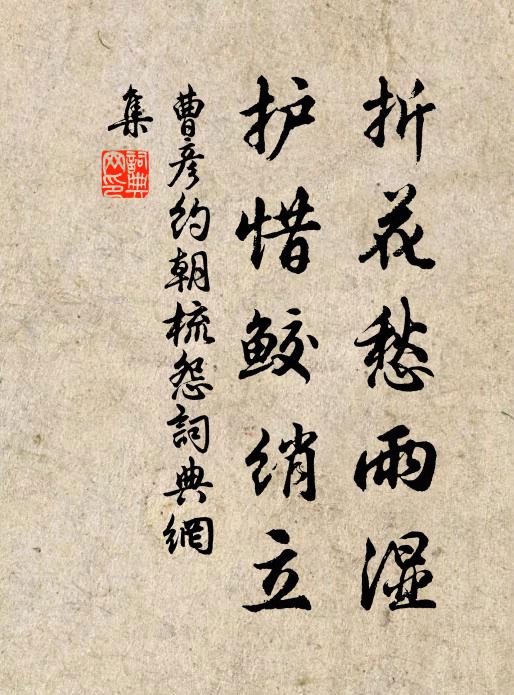 折花愁雨湿
护惜鲛绡立
曹彦约朝梳怨詞典網
集
詞典
网印